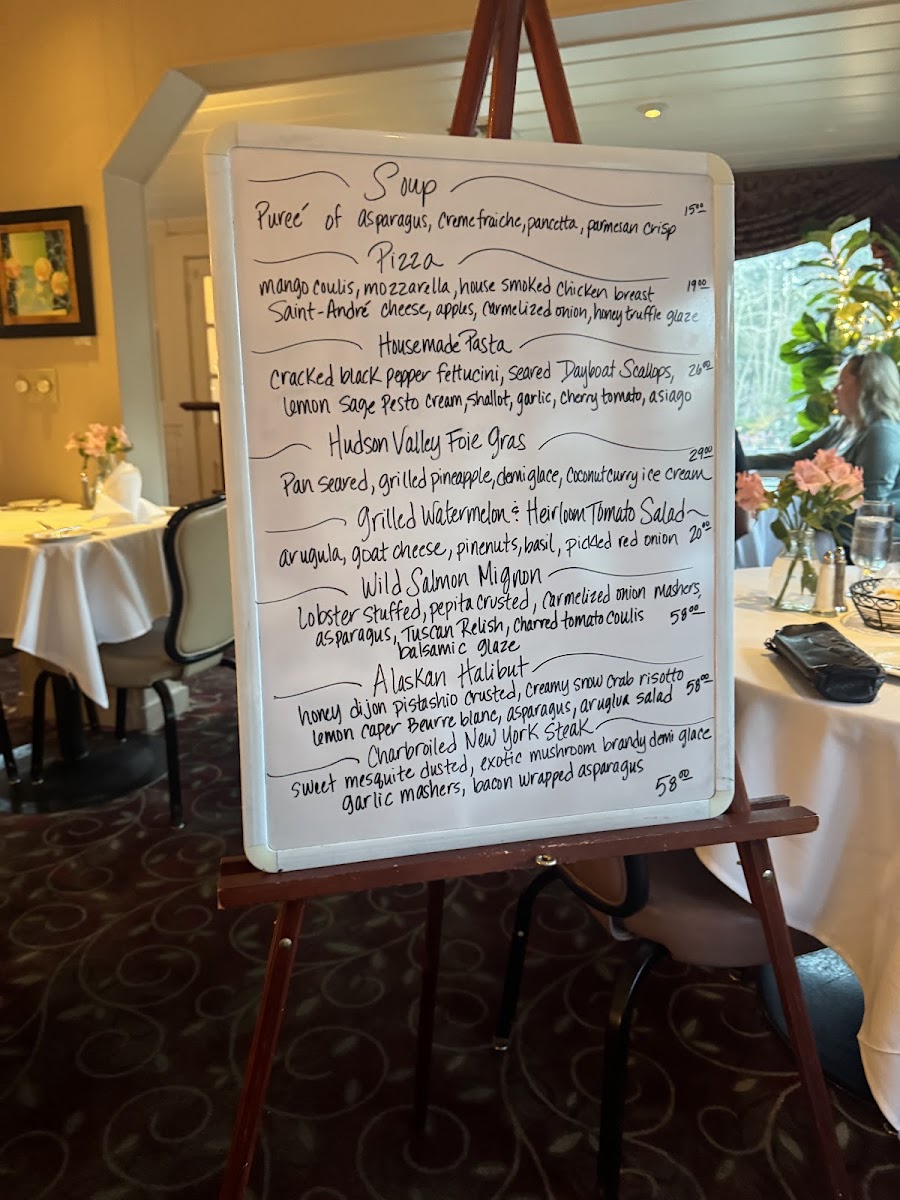 Soup
Pureé of asparagus, cremefraiche, pancetta, parmesan crisp 15⁰⁰
Pizza
mango coulis, mozzarella, house smoked chicken breast 19⁰⁰
Saint-André cheese, apples, carmelized onion, honey truffle glaze
Housemade Pasta
cracked black pepper fettucini, seared Dayboat Scallops, 26⁰⁰
lemon sage Pesto cream, shallot, garlic, cherry tomato, asiago
Hudson Valley Foie Gras
29⁰⁰
Pan seared, grilled pineapple, demi glace, coconut curry ice cream
Grilled Watermelon & Heirloom Tomato Salad
arugula, goat cheese, pinenuts, basil, pickled red onion 20⁰⁰
Wild Salmon Mignon
Lobster stuffed, pepita crusted, carmelized onion mashers,
asparagus, Tuscan Relish, charred tomato coulis 58⁰⁰
balsamic glaze
Alaskan Halibut
honey dijon pistashio crusted, creamy snow crab risotto 58⁰⁰
lemon caper Beurre blanc, asparagus, aruglua salad
Charbroiled New York Steak
sweet mesquite dusted, exotic mushroom brandy demi glace
garlic mashers, bacon wrapped asparagus
58⁰⁰